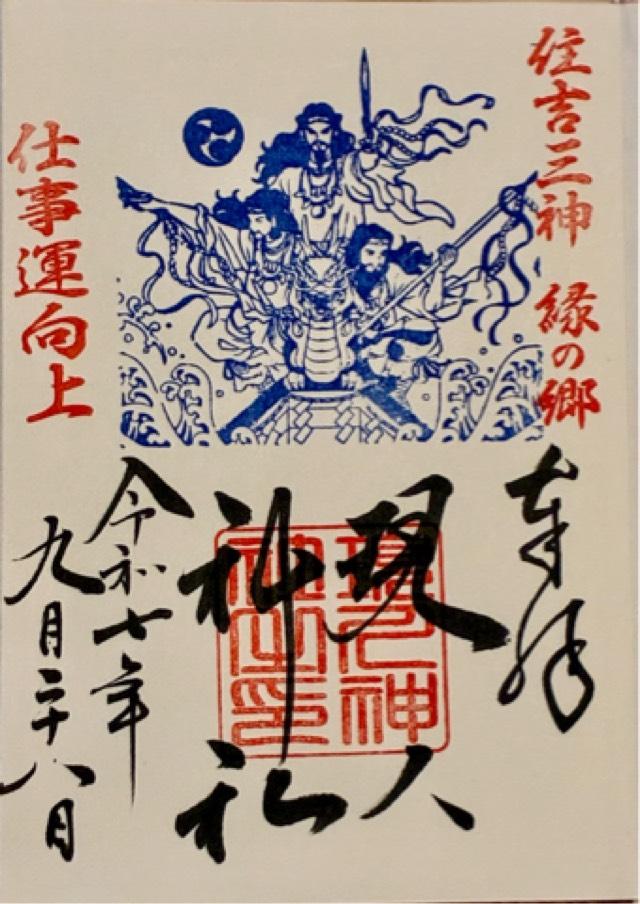 住吉三神 縁の郷
奉拝
現人
神社
現人神
社之印
仕事運向上
令和七年
九月二十八日